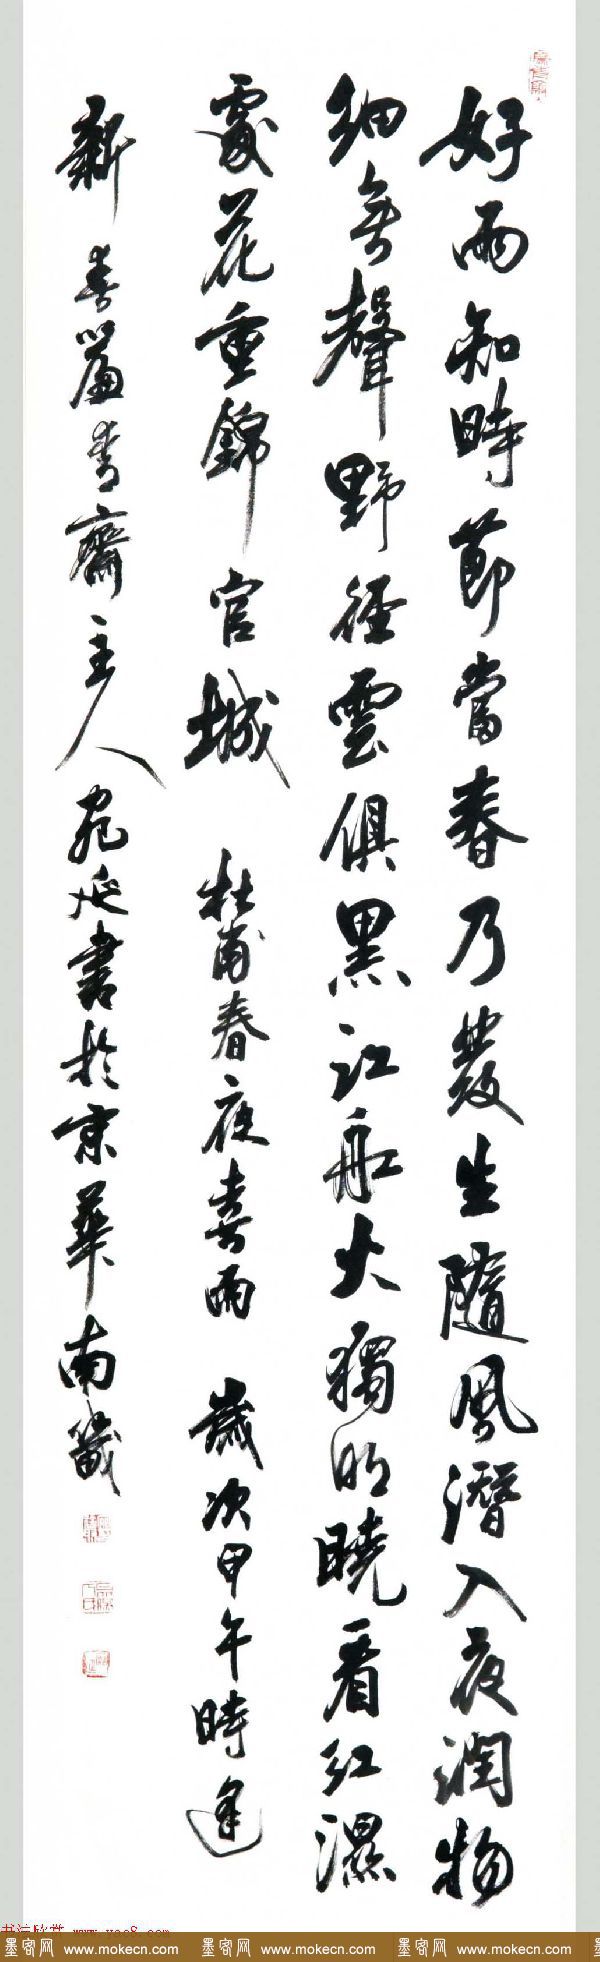 好雨知時節當春乃發生隨風潛入夜潤物
細無聲野徑雲俱黑江船火獨明曉看紅濕
處花重錦官城 杜甫春夜喜雨 歲次甲午時逢
新春簾青齋主人宛延書於京華南畿
书法欣赏 www.yac8.com
墨客网 www.mokecn.com 墨客网 www.mokecn.com 墨客网 www.mokecn.com